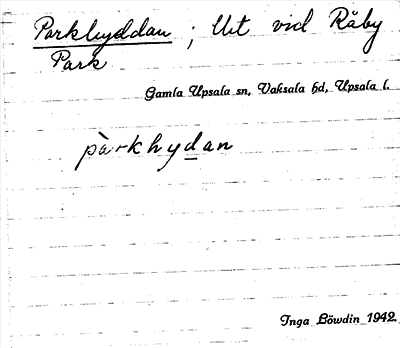 Parkhyddan ; Ut vid Råby
Park
Gamla Upsala sn, Vaksala hd, Upsala l.
pàrkhydan
Inga Löwdin 1942.